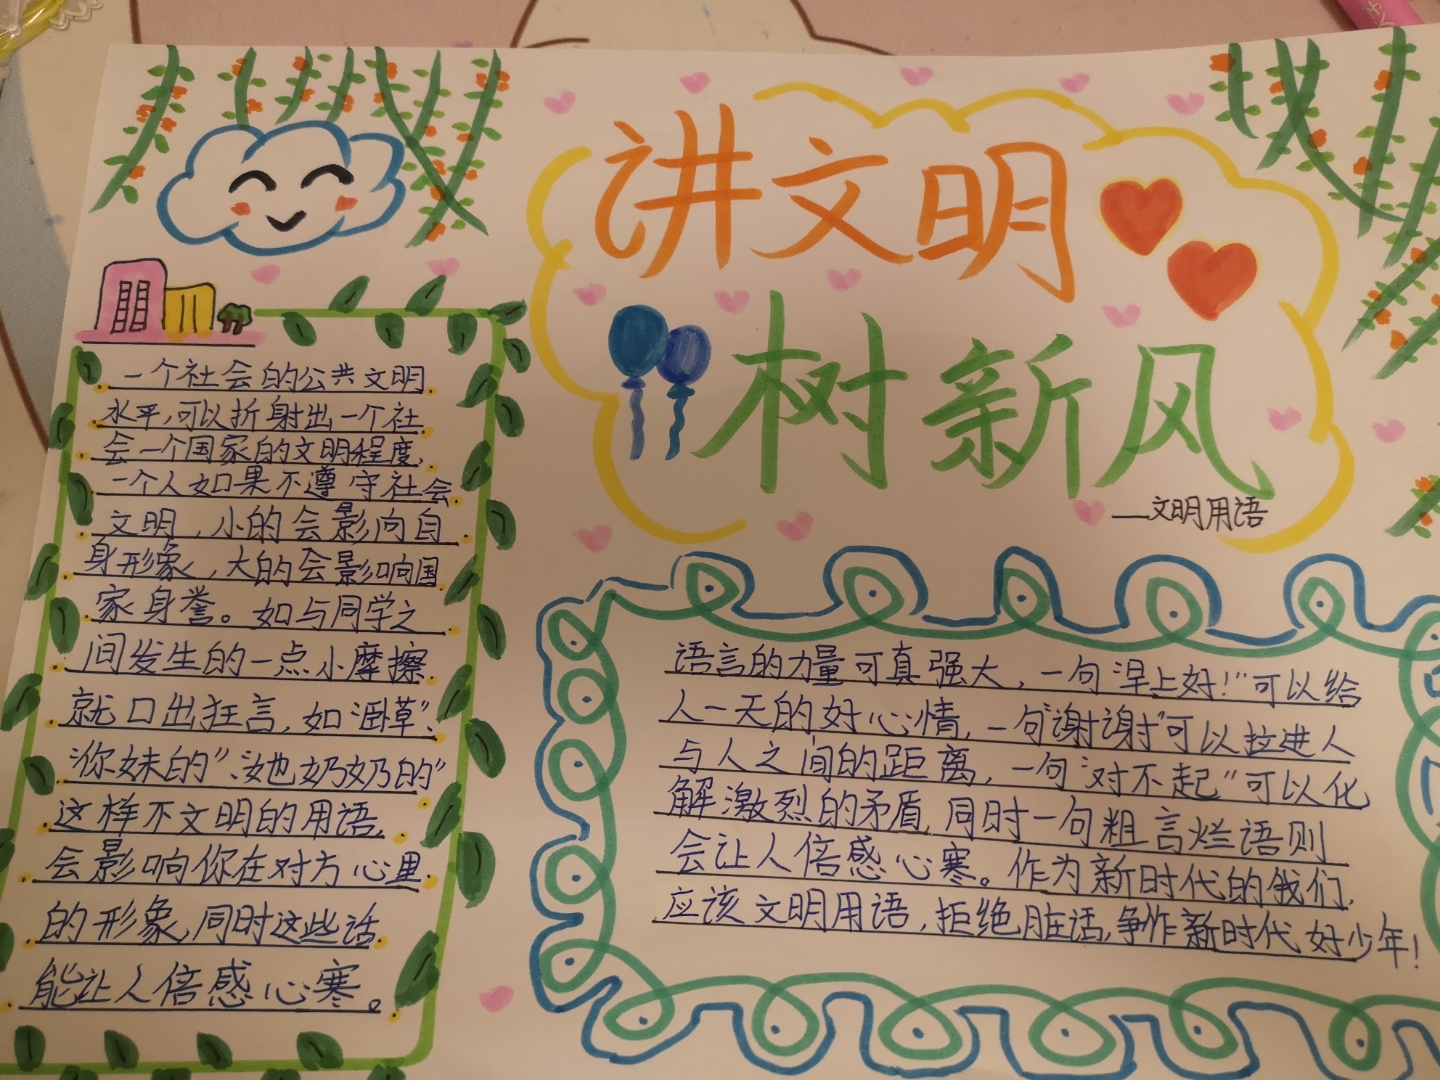 讲文明
树新风
——文明用语
一个社会的公共文明
水平,可以折射出一个社
会一个国家的文明程度,
一个人如果不遵守社会
文明,小的会影向自
身形象,大的会影响国
家身誉。如与同学之
间发生的一点小摩擦
就口出狂言,如"卧草"、
"你妹的"、"她奶奶的"
这样不文明的用语,
会影响你在对方心里
的形象,同时这些话
能让人倍感心寒。
语言的力量可真强大,一句"早上好!"可以给
人一天的好心情,一句"谢谢"可以拉进人
与人之间的距离,一句"对不起"可以化
解激烈的矛盾,同时一句粗言烂语则
会让人倍感心寒。作为新时代的我们,
应该文明用语,拒绝脏话,争作新时代好少年!